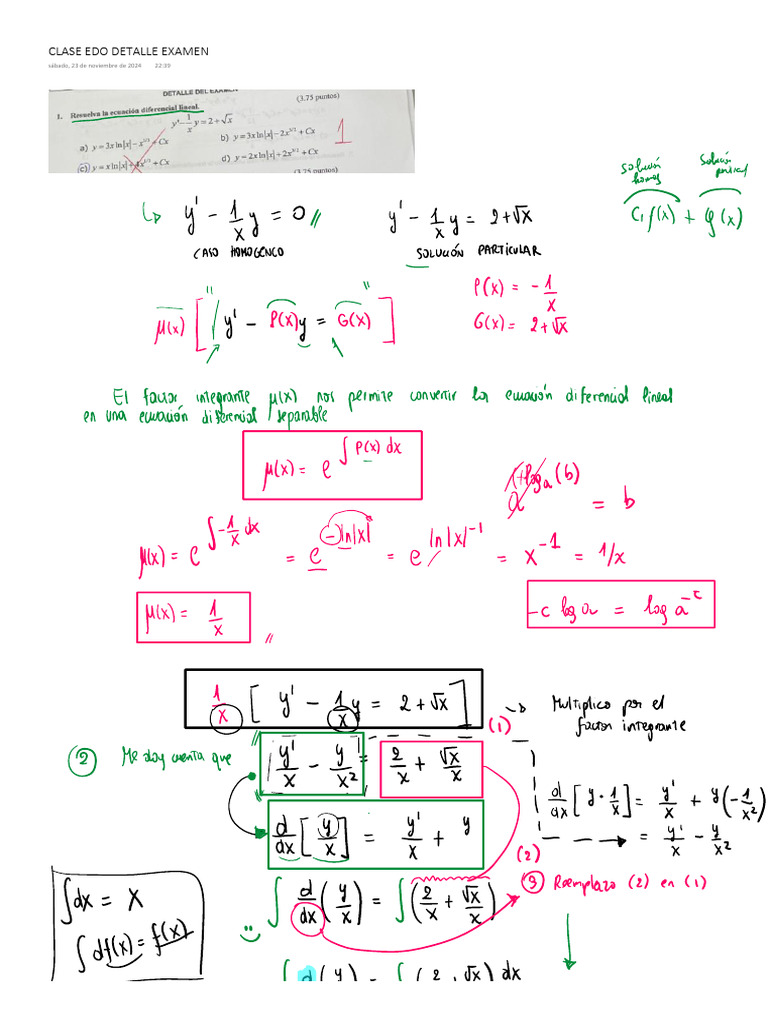 CLASE EDO DETALLE EXAMEN
sábado, 23 de noviembre de 2024 22:39
DETALLE DEL EXAMEN
(3.75 puntos)
1. Resuelva la ecuación diferencial lineal.
y' - 1/x y = 2 + √x
a) y = 3x ln|x| - x^{3/2} + Cx
b) y = 3x ln|x| - 2x^{3/2} + Cx
1
d) y = 2x ln|x| + 2x^{3/2} + Cx
(3.75 puntos)
solución homog
solución particul
C₁f(x) + g(x)
y' - 1/x y = 0 //
y' - 1/x y = 2 + √x
CASO HOMOGENEO
SOLUCIÓN PARTICULAR
P(x) = - 1/x
G(x) = 2 + √x
μ(x) [ y' - P(x)y = G(x) ]
El factor integrante μ(x) nos permite convertir la ecuación diferencial lineal
en una ecuación diferencial separable
μ(x) = e^{∫ P(x) dx}
a^{log_a (b)} = b
μ(x) = e^{∫ -1/x dx} = e^{-ln|x|} = e^{ln|x|^{-1}} = x^{-1} = 1/x
μ(x) = 1/x //
-c log a = log a^{-c}
1/x [ y' - 1/x y = 2 + √x ]
Multiplico por el
factor integrante
(1)
② Me doy cuenta que
y'/x - y/x² = 2/x + √x/x
d/dx [ y/x ] = y'/x + y
d/dx [ y · 1/x ] = y'/x + y(-1/x²)
= y'/x - y/x²
(2)
③ Reemplazo (2) en (1)
∫ d/dx (y/x) = ∫ (2/x + √x/x)
∫dx = x
∫df(x) = f(x)